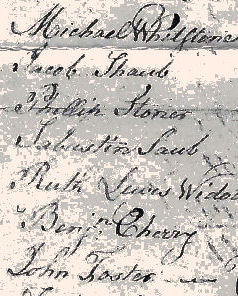 Michael Whilsten
Jacob Shaub
Phillip Stoner
Sabustin Saub
Ruth Lewis Widow
Benjn Cherry
John Foster